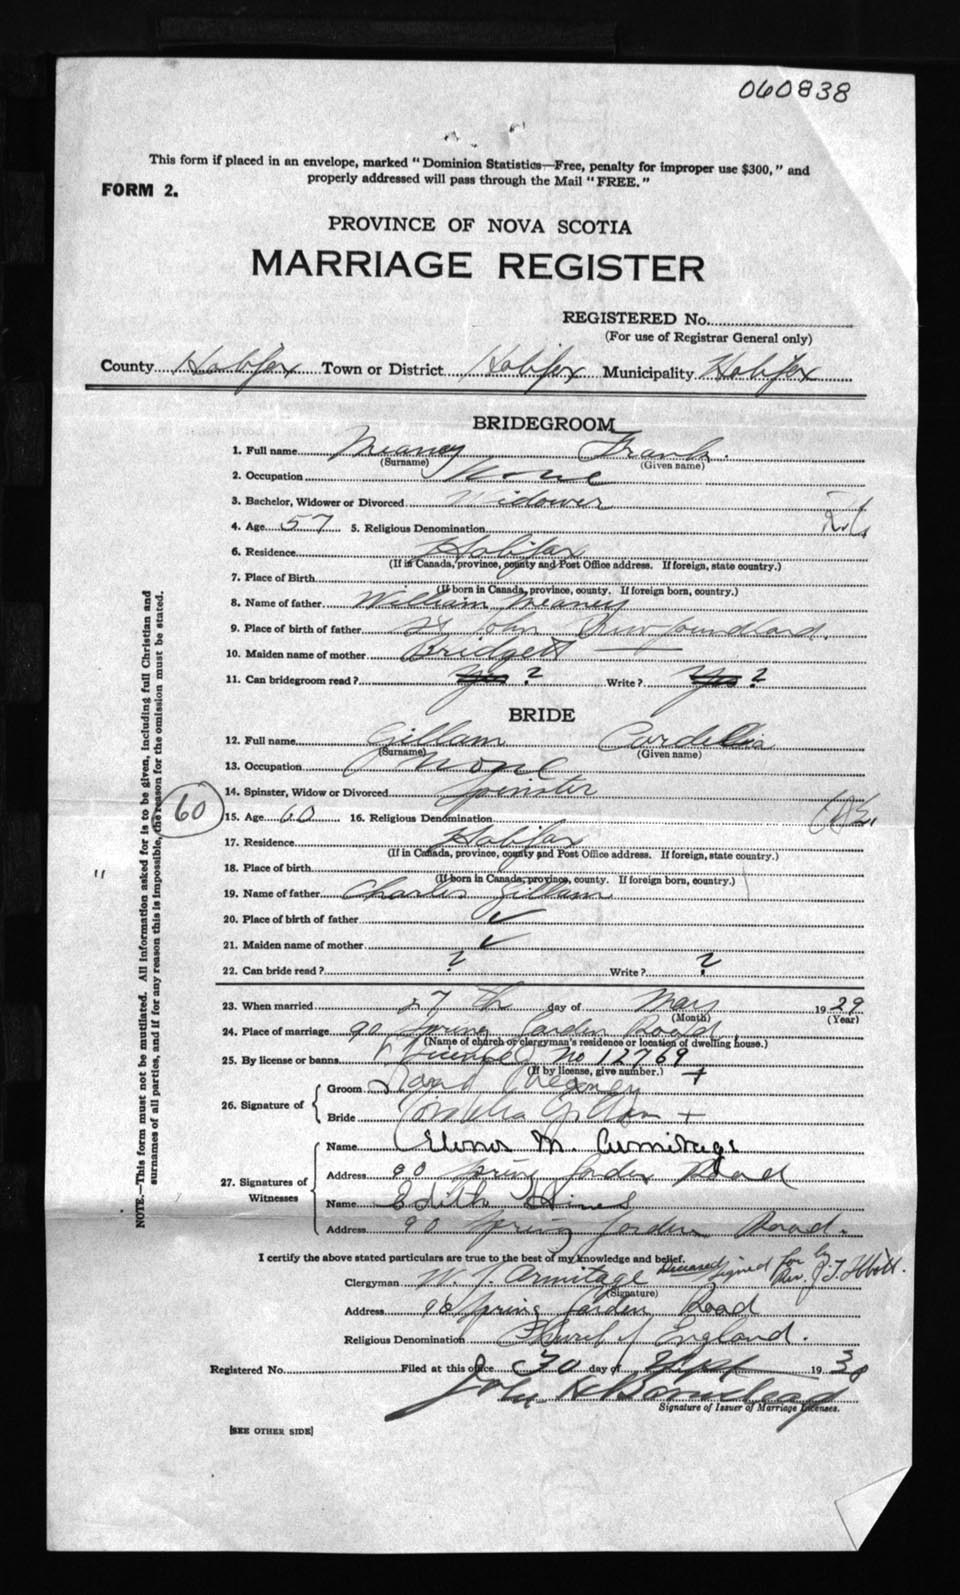 060838
This form if placed in an envelope, marked "Dominion Statistics—Free, penalty for improper use $300," and
properly addressed will pass through the Mail "FREE."
FORM 2.
PROVINCE OF NOVA SCOTIA
MARRIAGE REGISTER
REGISTERED No.
(For use of Registrar General only)
County Halifax Town or District Halifax Municipality Halifax
BRIDEGROOM
1. Full name Meaney Frank.
(Surname) (Given name)
2. Occupation None
3. Bachelor, Widower or Divorced Widower
4. Age 57 5. Religious Denomination R.C.
6. Residence Halifax
(If in Canada, province, county and Post Office address. If foreign, state country.)
7. Place of Birth
(If born in Canada, province, county. If foreign born, country.)
8. Name of father William Meaney
9. Place of birth of father St John Newfoundland.
10. Maiden name of mother Bridgett —
11. Can bridegroom read? Yes ? Write? Yes ?
BRIDE
12. Full name Gillam Cordelia
(Surname) (Given name)
13. Occupation None
14. Spinster, Widow or Divorced Spinster
60
15. Age 60 16. Religious Denomination
17. Residence Halifax
(If in Canada, province, county and Post Office address. If foreign, state country.)
18. Place of birth
(If born in Canada, province, county. If foreign born, country.)
"
19. Name of father Charles Gillam
20. Place of birth of father ✓
21. Maiden name of mother ✓
22. Can bride read? ? Write? ?
23. When married 27th day of May 1929
(Month) (Year)
24. Place of marriage 90 Spring Garden Road
(Name of church or clergyman's residence or location of dwelling house.)
25. By license or banns License No 12769
(If by license, give number.) +
26. Signature of
Groom Frank Meaney
Bride Cordelia Gillam +
27. Signatures of Witnesses
Name M. Armitage
Address 90 Spring Garden Road
Name Edith Hines
Address 90 Spring Garden Road.
I certify the above stated particulars are true to the best of my knowledge and belief.
Clergyman W. J. Armitage Deceased Signed for by Rev.
(Signature)
Address 90 Spring Garden Road
Religious Denomination Church of England.
Registered No. Filed at this office 30 day of Sept 1930
John
Signature of Issuer of Marriage Licenses.
[SEE OTHER SIDE]
NOTE.—This form must not be mutilated. All information asked for is to be given, including full Christian and
surnames of all parties, and if for any reason this is impossible, the reason for the omission must be stated.